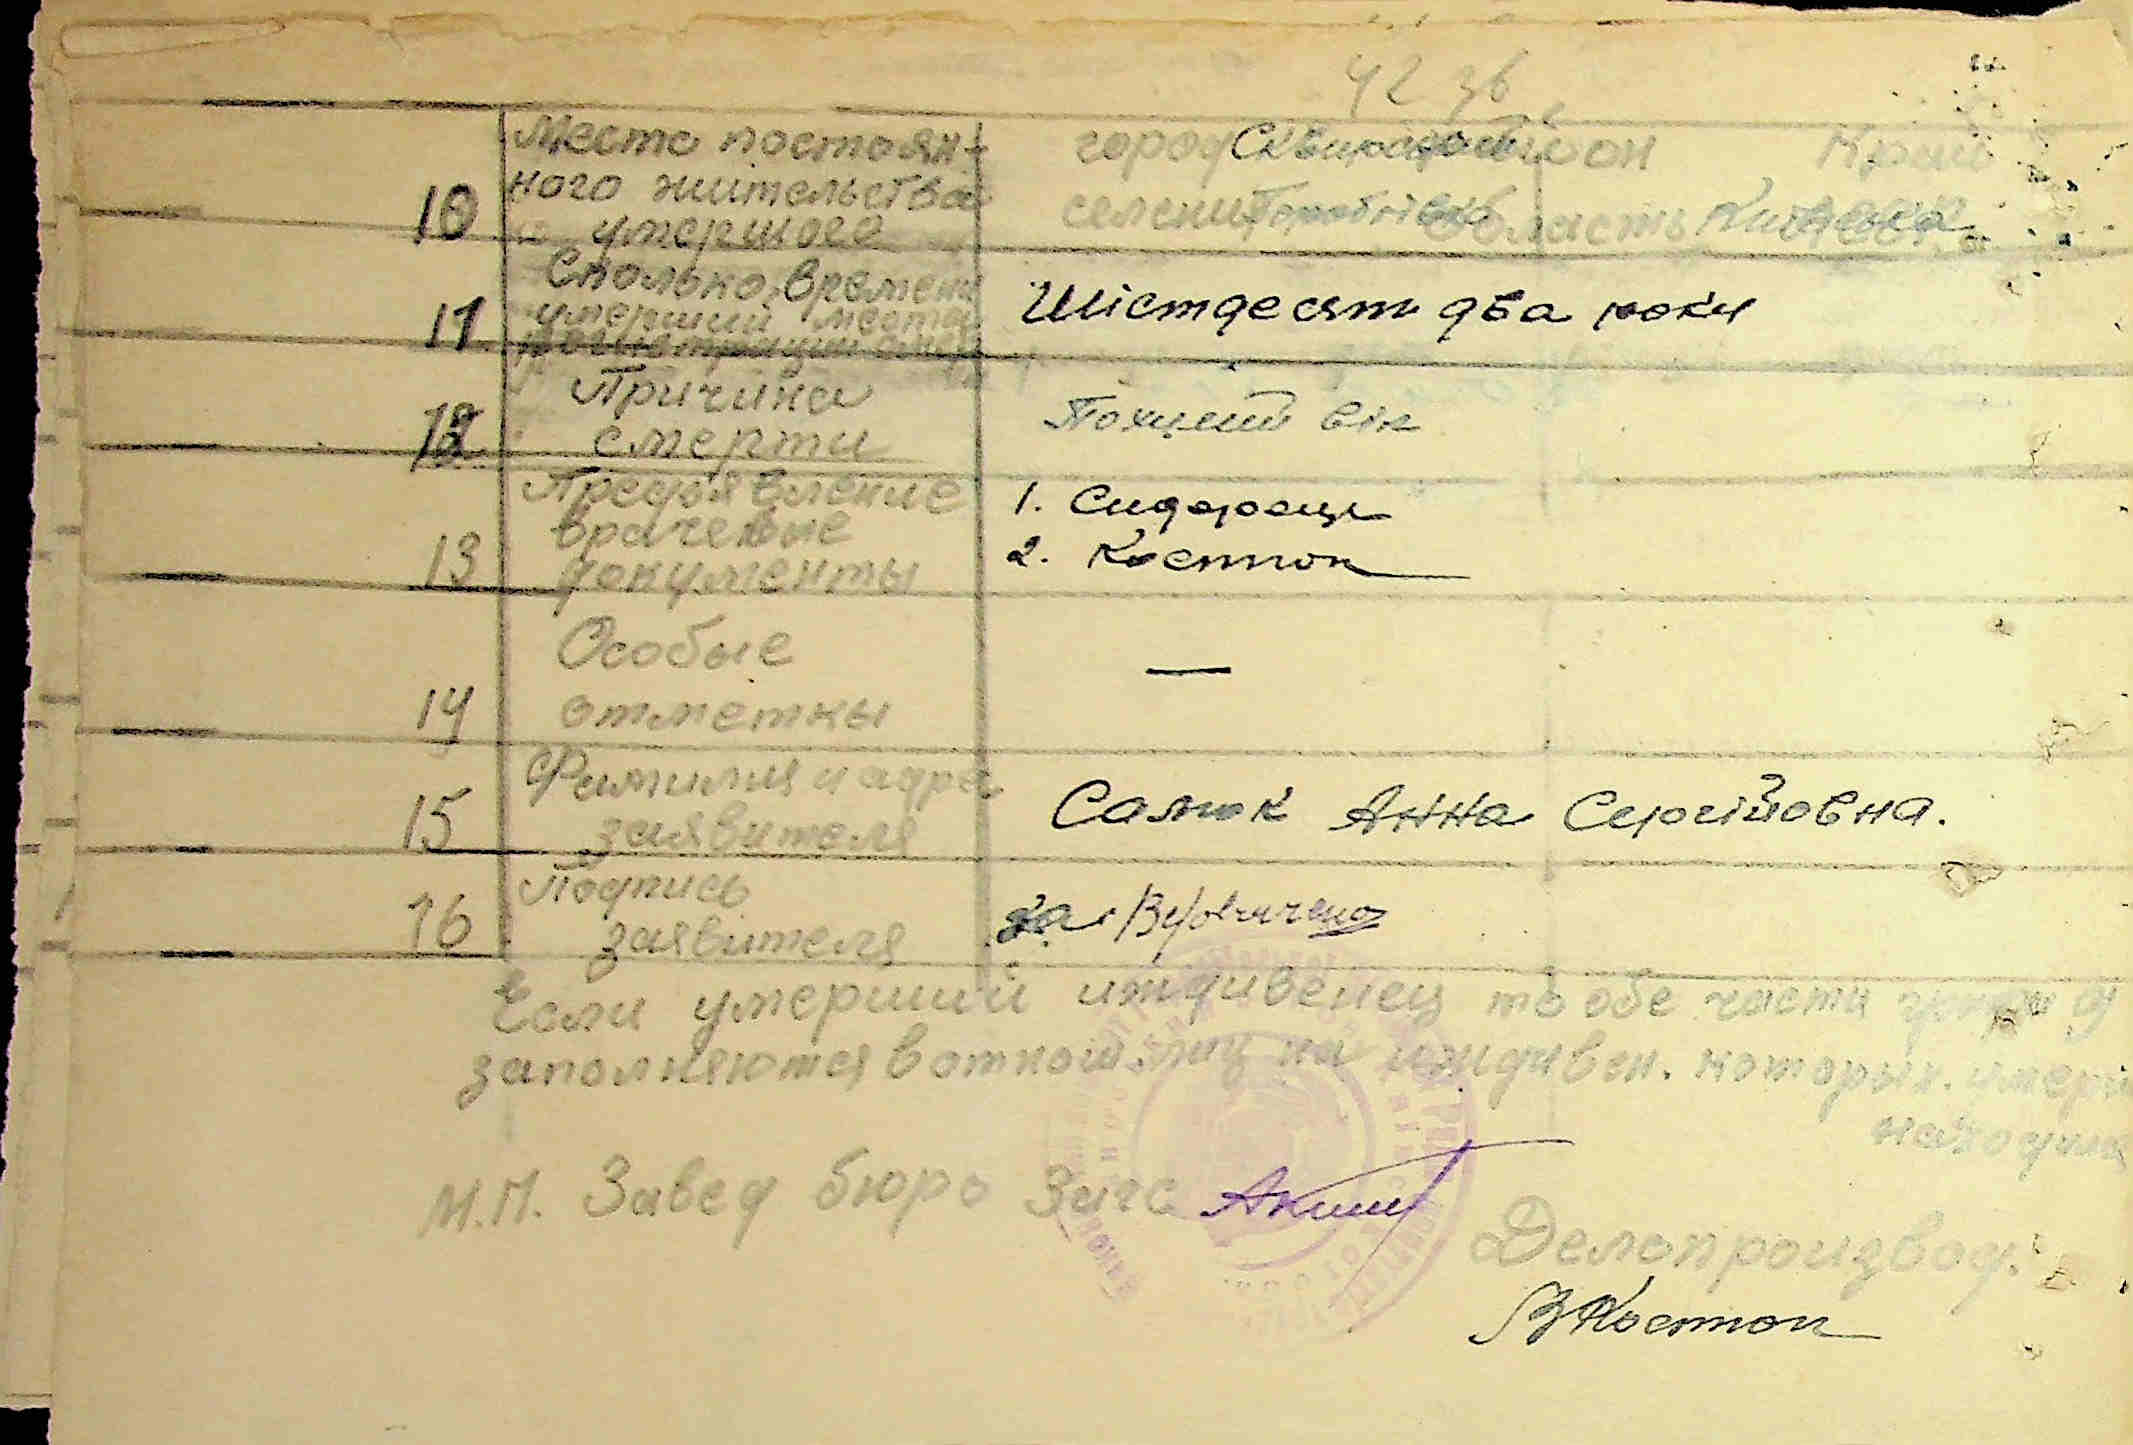 42 зв
10 Место постоян-
ного жительства
умершого
город Сквирський район Край
селение область Київська
11 Сколько времени
умерший места
регистрации
Шістдесят два роки
12 Причина
смерти
Похилий вік
13 Предоявление
врачебные
документы
1. Сидорець
2. Костюк
14 Особые
отметкы
—
15 Фамилия и адре
заявителя
Салюк Анна Сергіїовна.
16 Подпись
заявителя
за
Если умерший иждивенец то обе части
заполняются в отношении на иждивен. которых. умерш
находил
М.П. Завед бюро Загс
Делопроизвод.
ВКостюк